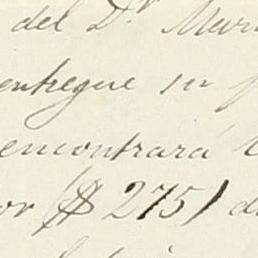 del Dr
entregue su
encontrará
or ($ 275) d